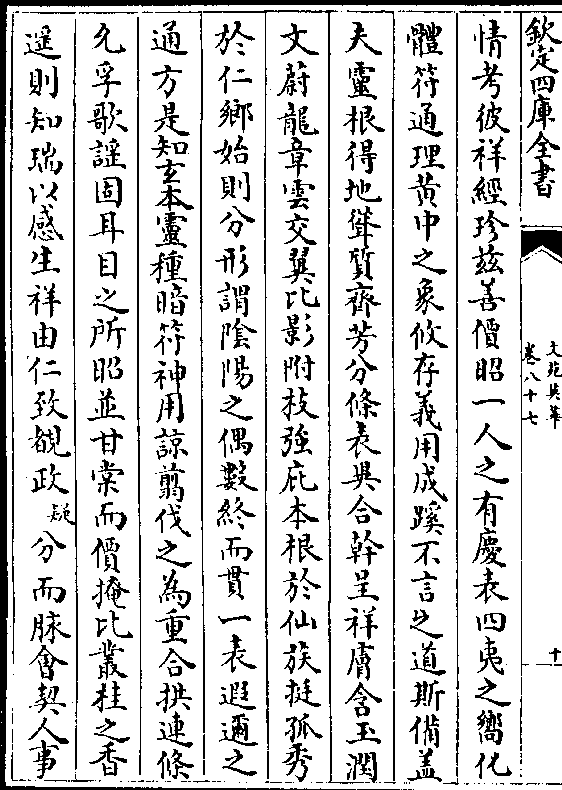 欽定四庫全書
文苑英華
卷八十七
十一
情考彼祥經珍兹善價昭一人之有慶表四夷之嚮化
體符通理黃中之象攸存義用成蹊不言之道斯備盖
夫靈根得地聳質齊芳分條表異合幹呈祥膚含玉潤
文蔚龍章雲交翼比影附技強庇本根於仙族挺孤秀
於仁鄉始則分形謂陰陽之偶數終而貫一表遐邇之
通方是知玄本靈種暗符神用諒翦伐之為重合拱連條
允孚歌謡固耳目之所昭並甘棠而價掩比叢桂之香
遥則知瑞以感生祥由仁致覩政疑分而脉會契人事